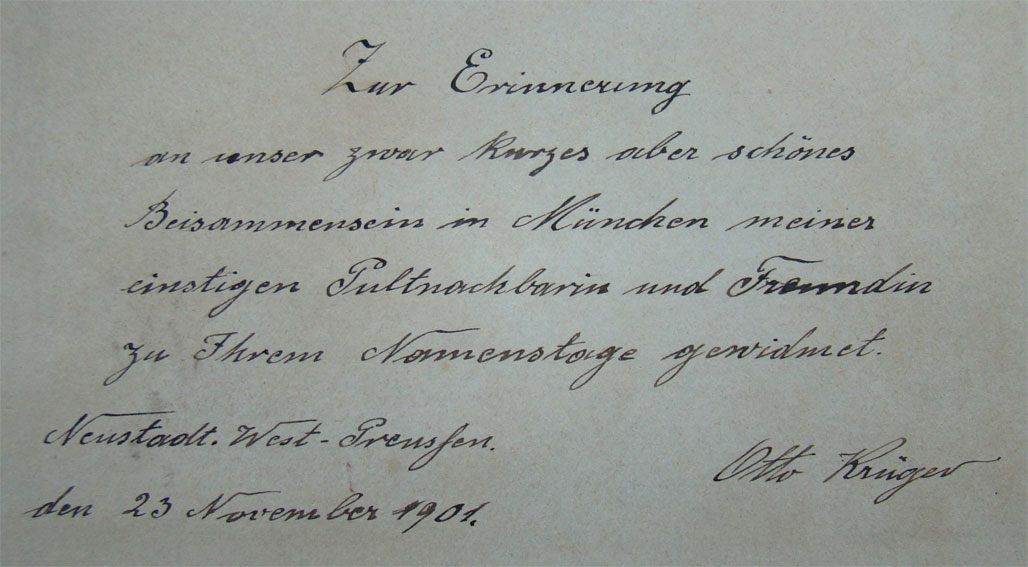 Zur Erinnerung
an unser zwar kurzes aber schönes
Beisammensein in München meiner
einstigen Pultnachbarin und Freundin
zu Ihrem Namenstage gewidmet.
Neustadt. West-Preussen.
Otto Krüger
den 23 November 1901.